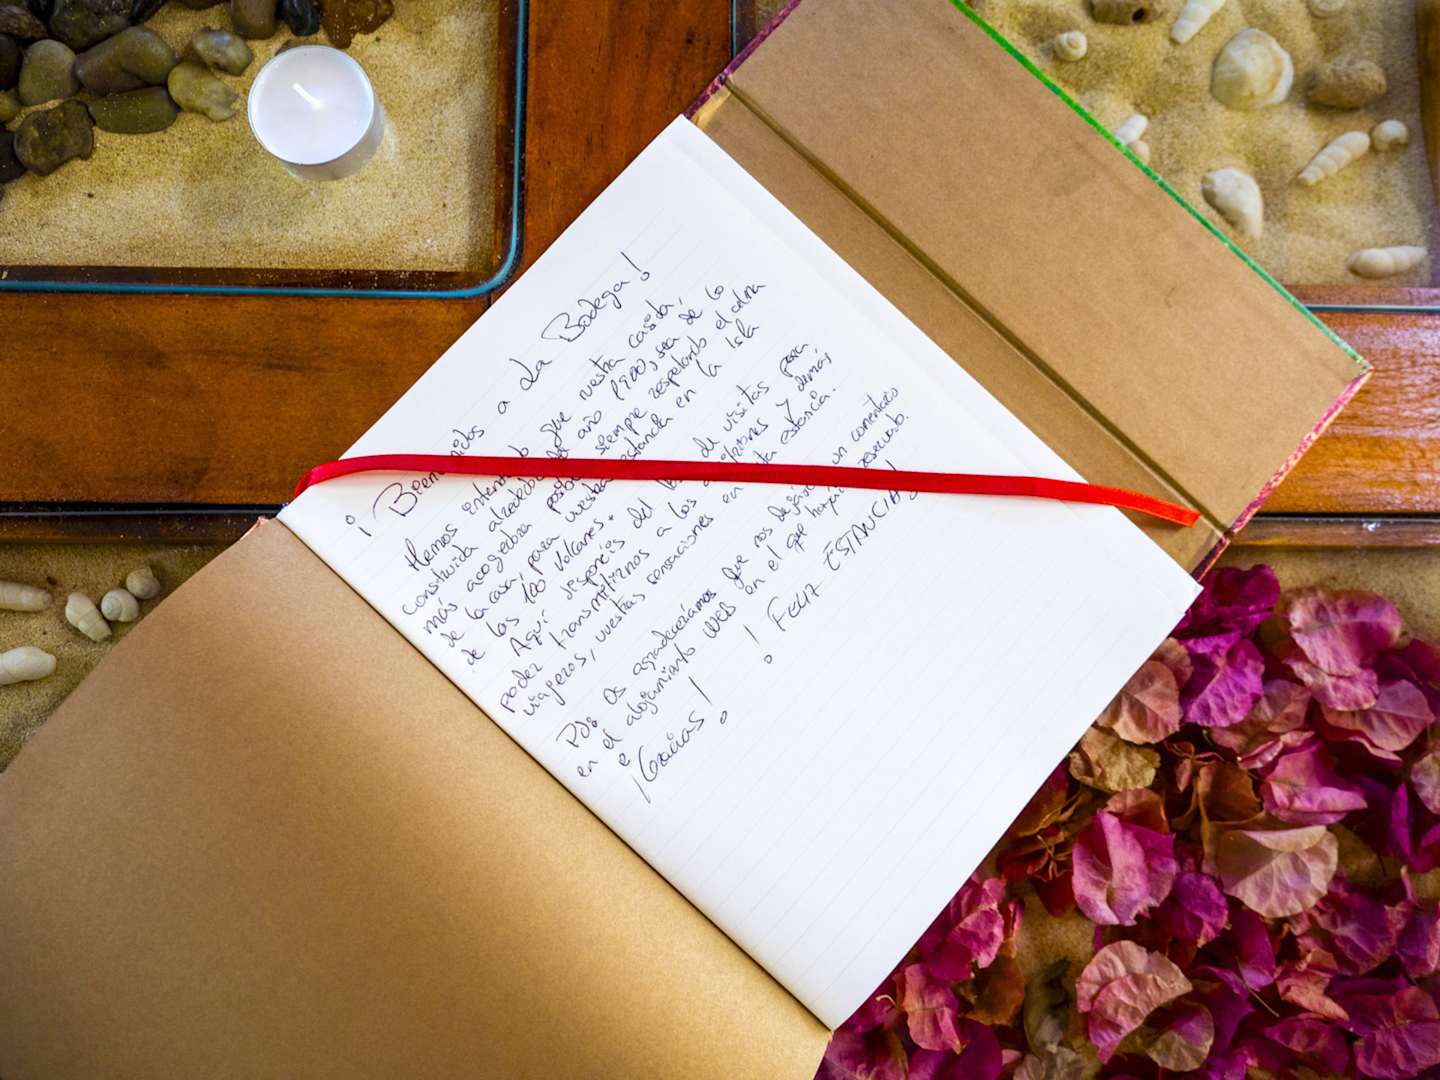 ¡Bienvenidos a La Bodega!
Hemos intentado que nuestra casita,
construida alrededor del año 1900, sea de lo
más acogedora posible siempre respetando el alma
de la casa, para vuestra estancia en la Isla
de los 100 Volcanes.
Aquí disponéis del de visitas para
poder transmitirnos a los y demás
viajeros, vuestras sensaciones en estancia.
Pd: Os agradeceríamos que nos dejáseis un comentario
en el alojamiento web en el que reservado.
e
¡Gracias! ! FELIZ ESTANCIA!